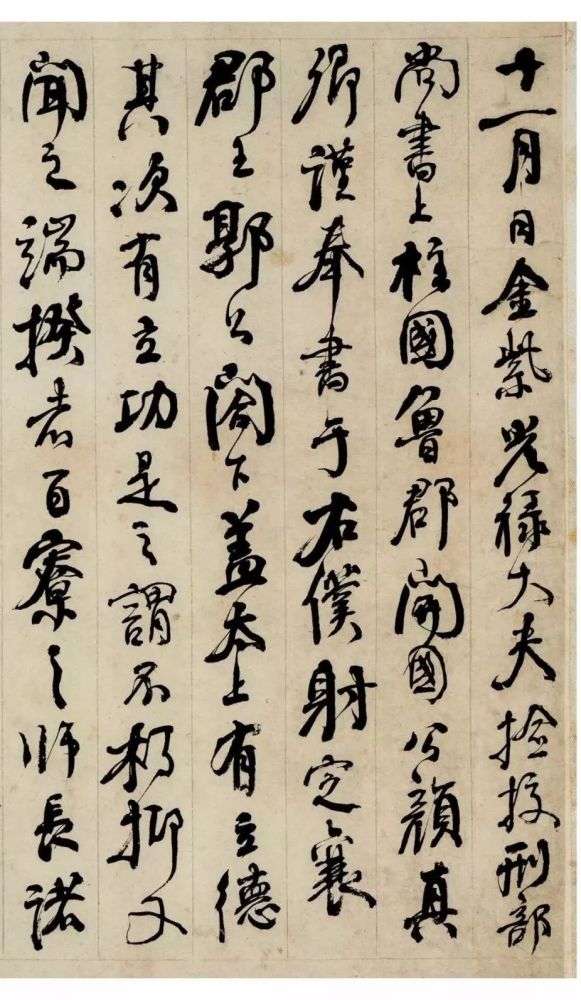 十一月日金紫光禄大夫捡挍刑部
尚書上柱國魯郡開國公顔真
卿謹奉書于右僕射定襄
郡王郭公閤下盖太上有立德
其次有立功是之謂不朽抑又
聞之端揆者百寮之師長諸